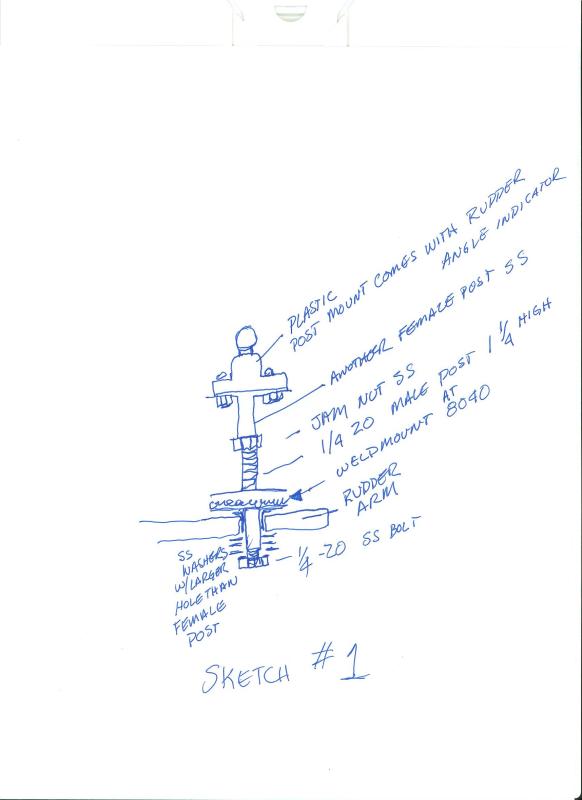 PLASTIC
POST MOUNT COMES WITH RUDDER
ANGLE INDICATOR
ANOTHER FEMALE POST SS
JAM NUT SS
1/4 20 MALE POST 1 1/4 HIGH
WELDMOUNT AT
8040
RUDDER
ARM
1/4-20 SS BOLT
SS
WASHERS
W/LARGER
HOLE THAN
FEMALE
POST
SKETCH #1